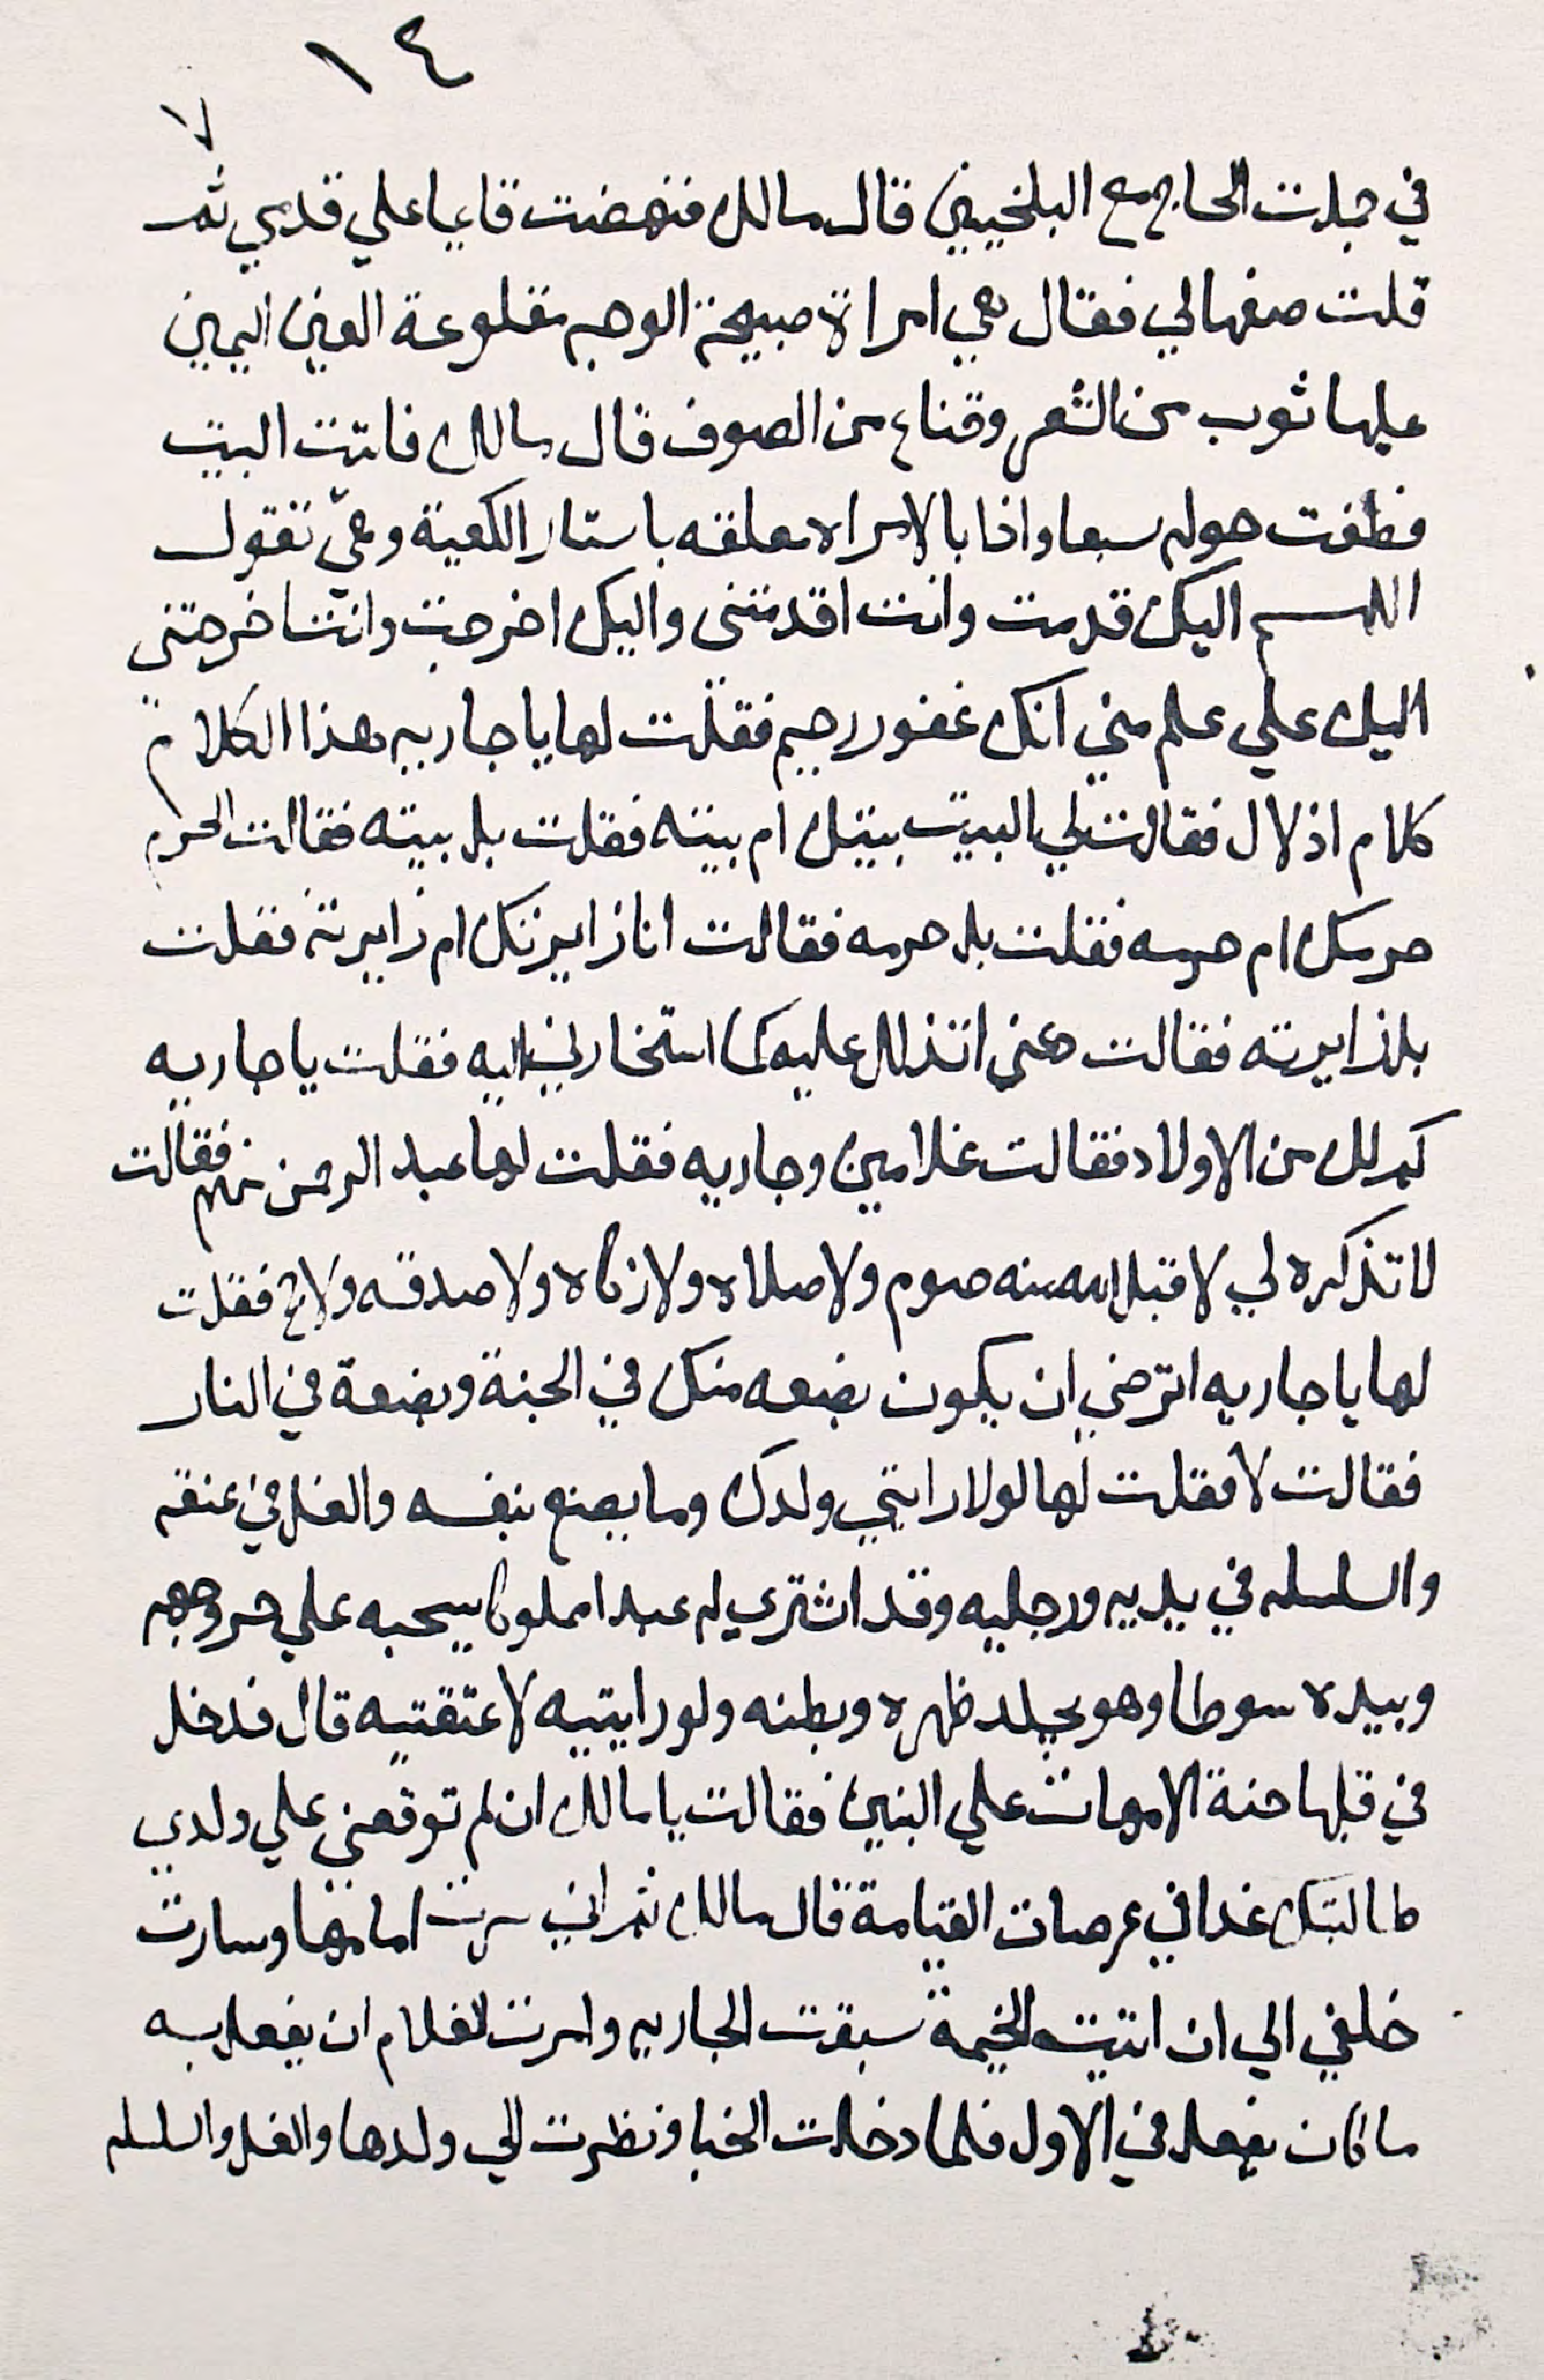 ١٤
٧
في جملت الحاج مع البلخيين قال مالك فنهضت قايما علي قدمي ثم
قلت صفها لي فقال هي امراة صبيحة الوجه مقلوعة العين اليمين
عليها ثوب من الشعر وقناع من الصوف قال مالك فاتت البيت
فطفت حوله سبعا واذا بالامراه معلقه باستار الكعبة وهي تقول
اللهم اليك قدمت وانت اقدمتنى واليك اخرجت وانت اخرجتني
اليك علي علم مني انك غفور رحيم فقلت لها يا جاريه هذا الكلام
كلام اذلال فقالت لي البيت بيتك ام بيته فقلت بل بيته فقالت الحرم
حرمك ام حرمه فقلت بل حرمه فقالت انا زايرتك ام زايرته فقلت
بل زايرته فقالت دعني اتذلل عليه كما استخارني اليه فقلت يا جاريه
كم لك من الاولاد فقالت غلامين وجاريه فقلت لها عبد الرحمن منهم فقالت
لا تذكره لي لا قبل الله منه صوم ولا صلاه ولا زكاه ولا صدقه ولا حج فقلت
لها يا جاريه اترضي ان يكون بضعه منك في الجنة وبضعة في النار
فقالت لا فقلت لها لولا رايتي ولدك وما يصنع بنفسه والغل في عنقه
والسلسله في يديه ورجليه وقد اشتري له عبدا مملوكا يسحبه علي حر وجهه
وبيده سوطا وهو يجلد ظهره وبطنه ولو رايتيه لاعتقتيه قال فدخل
في قلبها حنة الامهات علي البنين فقالت يا مالك ان لم توقفني علي ولدي
طالبتك غدا في عرصات القيامة قال مالك ثم اني سرت امامها وسارت
خلفي الي ان اتيت الخيمة سبقت الجاريه وامرت الغلام ان يفعل به
ما كان يفعل في الاول فلما دخلت الخبا ونظرت الي ولدها والغل والسلسله